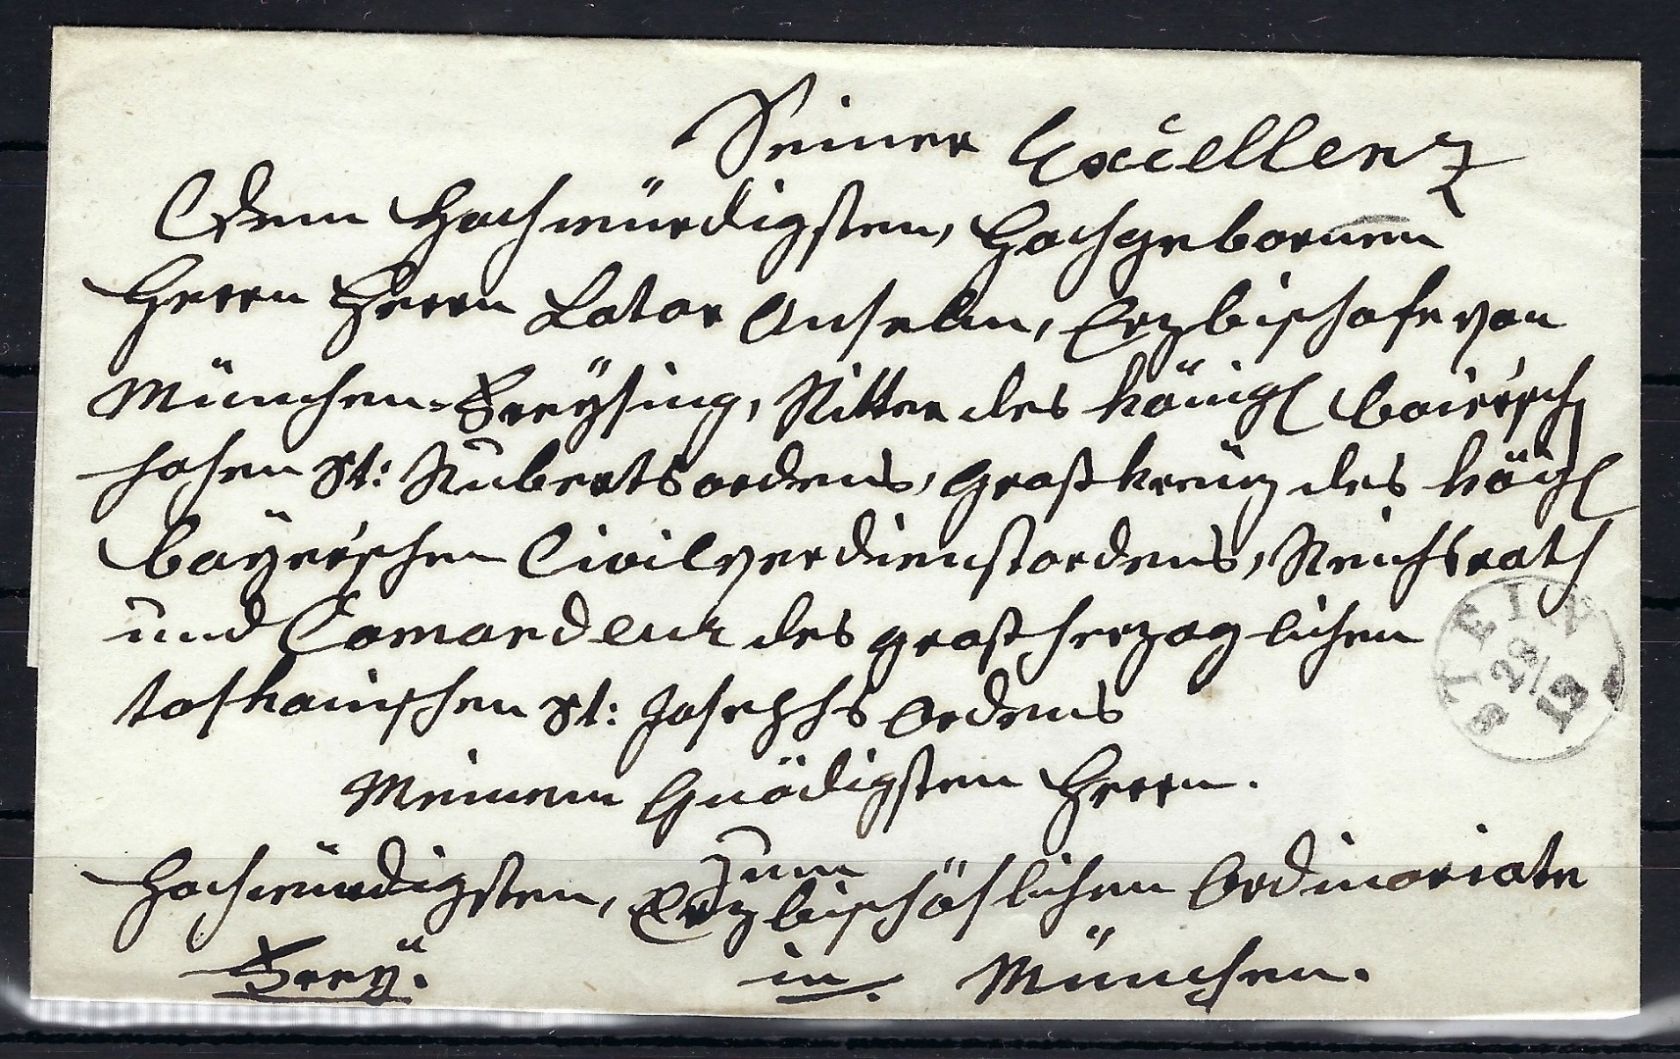 Seiner Excellenz
Dem Hochwürdigsten, Hochgebornen
Herrn Herrn Lotar Anselm, Erzbischofe von
München-Freÿsing, Ritter des königl baierisch
hohen St: Huberts ordens, Großkreuz des königl
bayerischen Civilverdienstordens, Reichsrath
und Comandeur des großherzoglichen
toskanischen St: Josephs Ordens
Meinem Gnädigsten Herrn.
zum
Hochwürdigsten, Erzbischöflichen Ordinariate
Freÿ. in München.
STEIN
29/12